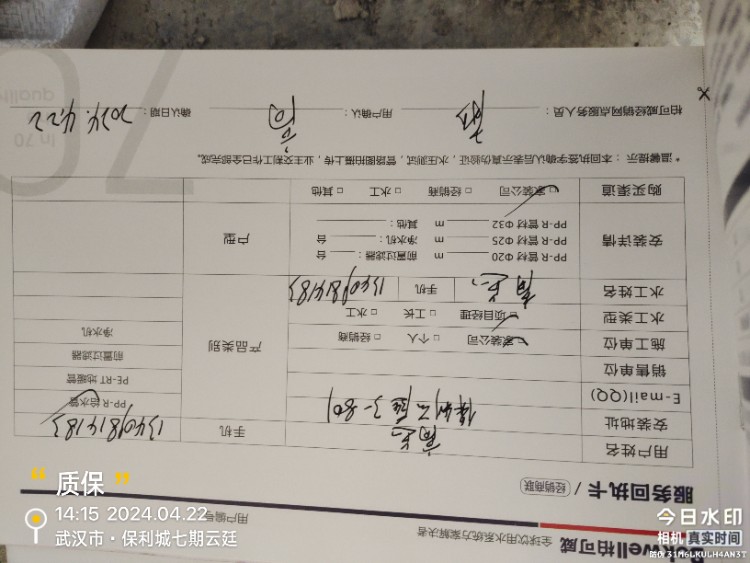 Bakwell柏可威 全球饮用水系统方案解决者
服务回执卡 / 经销商联 用户编号
用户姓名 高总 手机 13409814183
安装地址 保利云廷3-801
E-mail(QQ)
销售单位
施工单位 □家装公司 □个人 □经销商
水工类型 □项目经理 □工长 □水工
水工姓名 高总 手机 13409814183
产品类别 PP-R给水管
PE-RT地暖管
前置过滤器
净水机
安装详情 PP-R管材Φ20 m 前置过滤器: 台
PP-R管材Φ25 m 净水机: 台
PP-R管材Φ32 m 其他:
户型
购买渠道 □家装公司 □经销商 □水工 □其他
*温馨提示:本回执签字确认后表示真伪验证,水压测试,管路图拍摄上传,业主交割工作已全部完成。
柏可威经销网点服务人员: 用户确认: 确认日期: 2024.4.22
quality
In 70
“质保”
14:15 2024.04.22
武汉市·保利城七期云廷
今日水印
相机 真实时间
防伪 31M6LKULH4AN3T